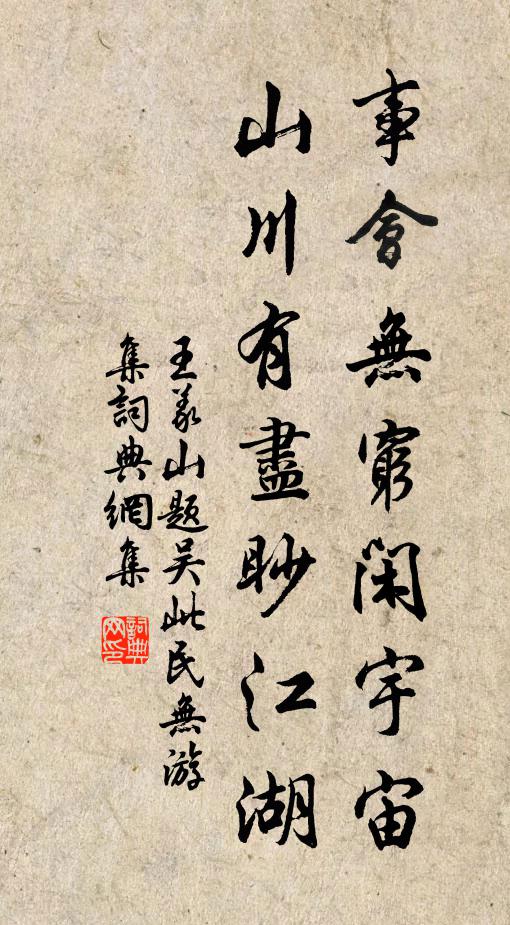 事會無窮閑宇宙
山川有盡眇江湖
王義山題吴此民無游
集詞典網集
詞典
网印